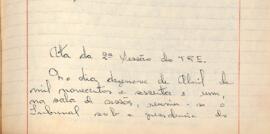 Ata da 2ª Sessão do T.R.E.
No dia dezenove de Abril de
mil novecentos e sessenta e um,
na sala de sessões, reuniu-se o
Tribunal sob a presidência do